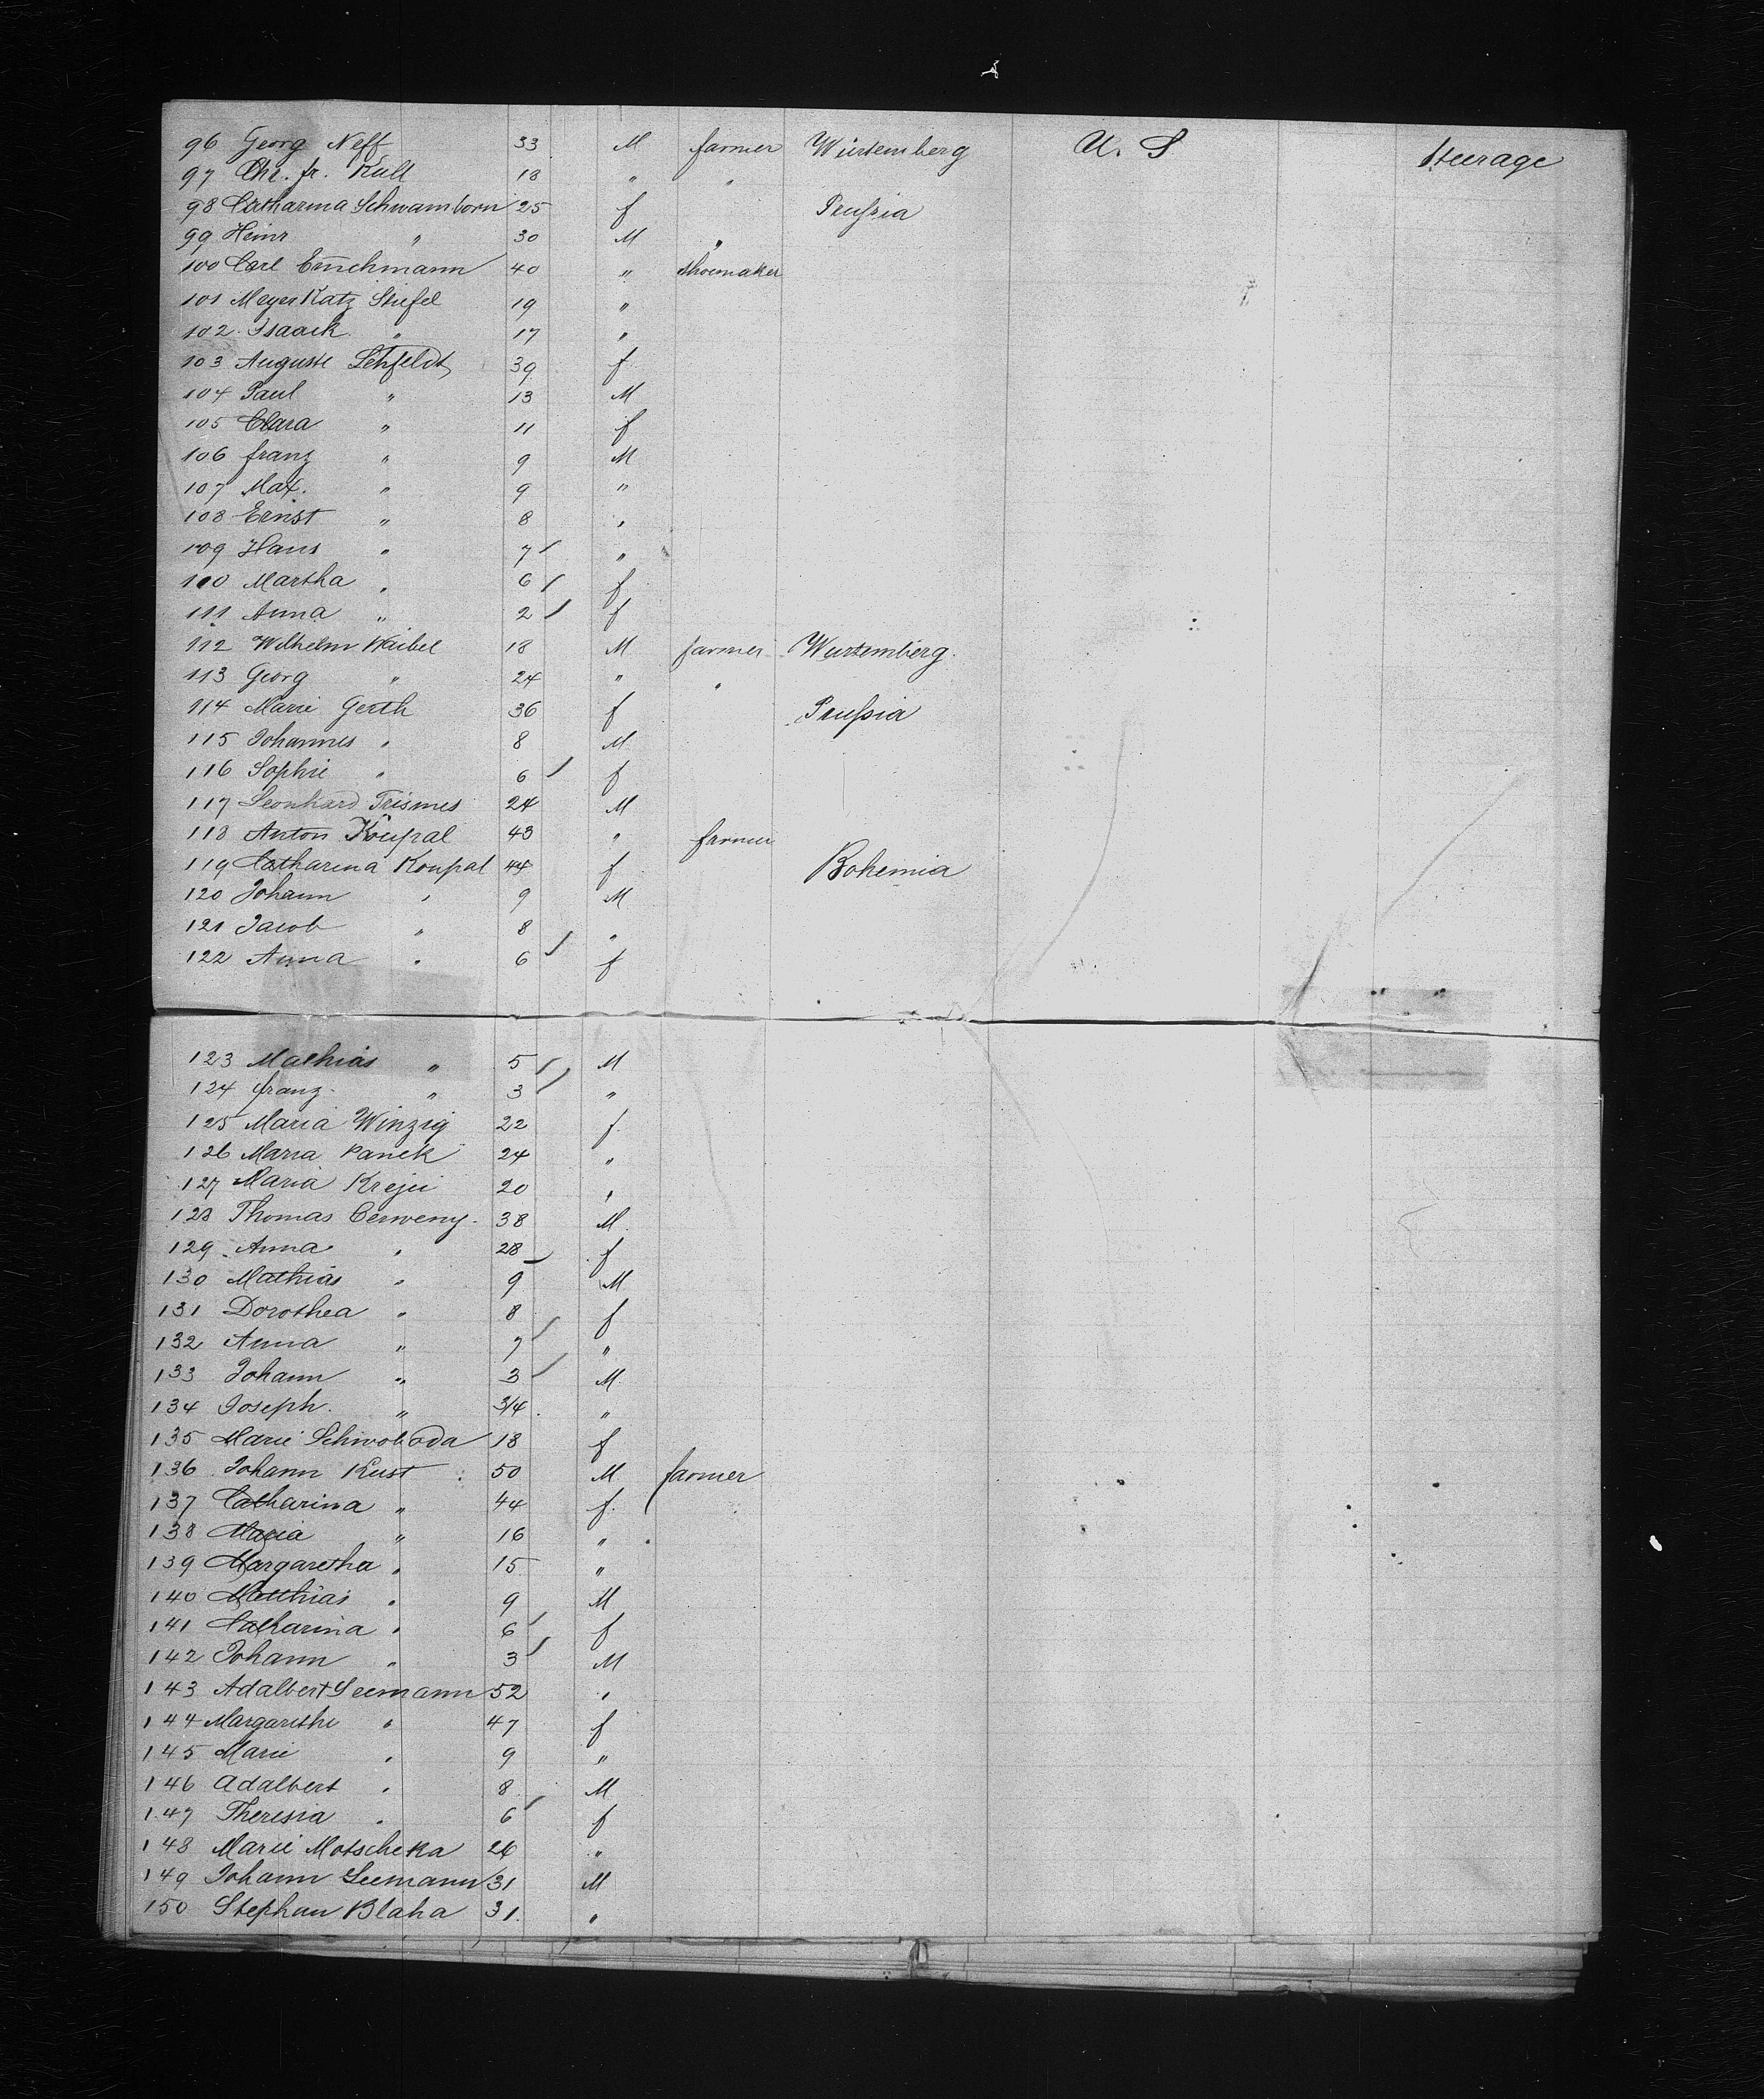 96 Georg Neff 33 M farmer Würtemberg U. S Steerage
97 Chr. fr. Kull 18 " "
98 Catharina Schwamborn 25 f Prußia
99 Heinr " 30 M "
100 Carl 40 " Shoemaker
101 Meyer Katz Stiefel 19 "
102 Isaack " 17 "
103 Auguste Lehfeldt 39 f
104 Paul " 13 M
105 Clara " 11 f
106 franz " 9 M
107 Max. " 9 "
108 Ernst " 8 "
109 Hans " 7 / "
110 Martha " 6 / f
111 Anna " 2 / f
112 Wilhelm Waibel 18 M farmer Wurtemberg.
113 Georg " 24 " "
114 Marie Gerth 36 f Prußia
115 Johannes " 8 M
116 Sophie " 6 / f
117 Leonhard Trismes 24 M
118 Anton Koupal 43 " farmer
119 Catharina Koupal 44 f Bohemia
120 Johann " 9 M
121 Jacob " 8 "
122 Anna " 6 / f
123 Mathias " 5 / M
124 franz " 3 / "
125 Maria Winzig 22 f.
126 Maria Panek 24 "
127 Maria Krejci 20 "
128 Thomas Cerweny 38 M.
129 Anna " 28 f
130 Mathias " 9 M
131 Dorothea " 8 f
132 Anna " 7 / "
133 Johann " 3 / M.
134 Joseph. " 3/4. "
135 Marie Schwoboda 18 f
136 Johann Kust 50 M farmer
137 Catharina " 44 f.
138 Maria " 16 "
139 Margaretha " 15 "
140 Matthias " 9 M
141 Catharina " 6 / f
142 Johann " 3 / M
143 Adalbert Seemann 52 "
144 Margarethe " 47 f
145 Marie " 9 "
146 Adalbert " 8 M
147 Theresia " 6 / f
148 Marie Motscheka 26 "
149 Johann Seemann 31 M
150 Stephan Blaha 31. "